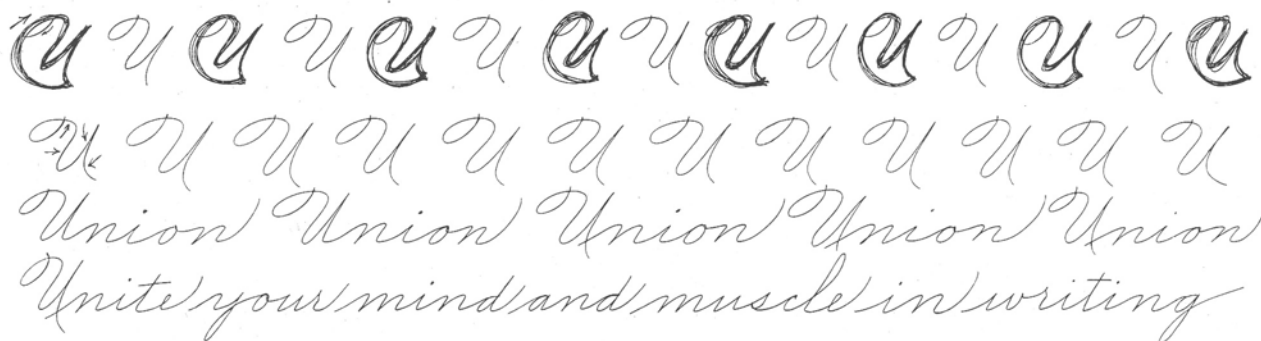 U U U U U U U U U U U U U U U
U U U U U U U U U U U U
Union Union Union Union Union
Unite your mind and muscle in writing